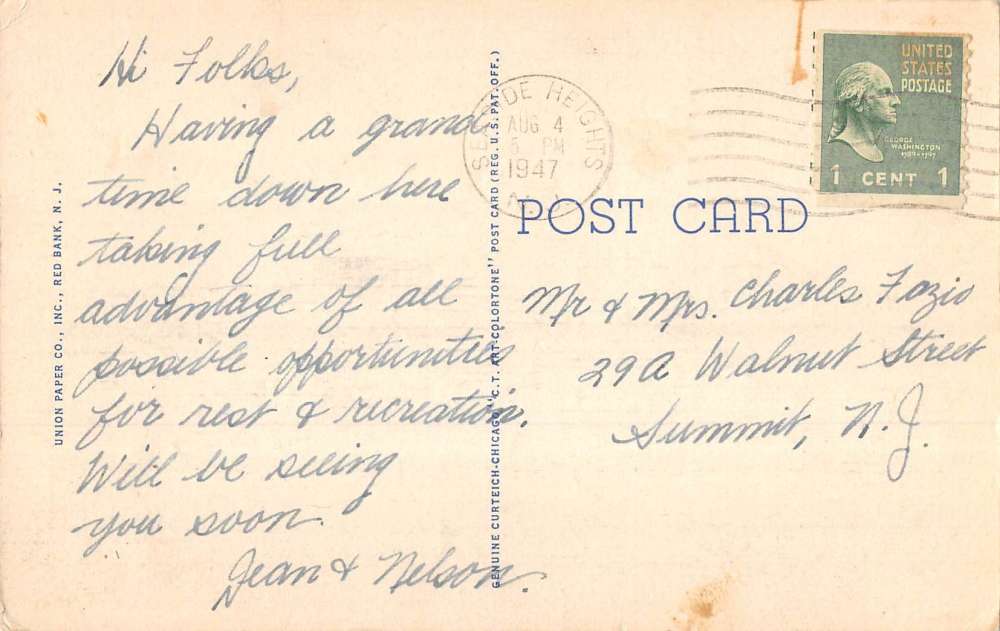 Hi Folks,
Having a grand
time down here
taking full
advantage of all
possible opportunities
for rest & recreation.
Will be seeing
you soon.
Jean & Nelson.
UNION PAPER CO., INC., RED BANK, N. J.
GENUINE CURTEICH-CHICAGO "C.T. ART-COLORTONE" POST CARD (REG. U.S. PAT. OFF.)
SEASIDE HEIGHTS
AUG 4
5 PM
1947
N.J.
UNITED
STATES
POSTAGE
GEORGE
WASHINGTON
1789-1797
1 CENT 1
POST CARD
Mr & Mrs. Charles Fazio
29A Walnut Street
Summit, N. J.